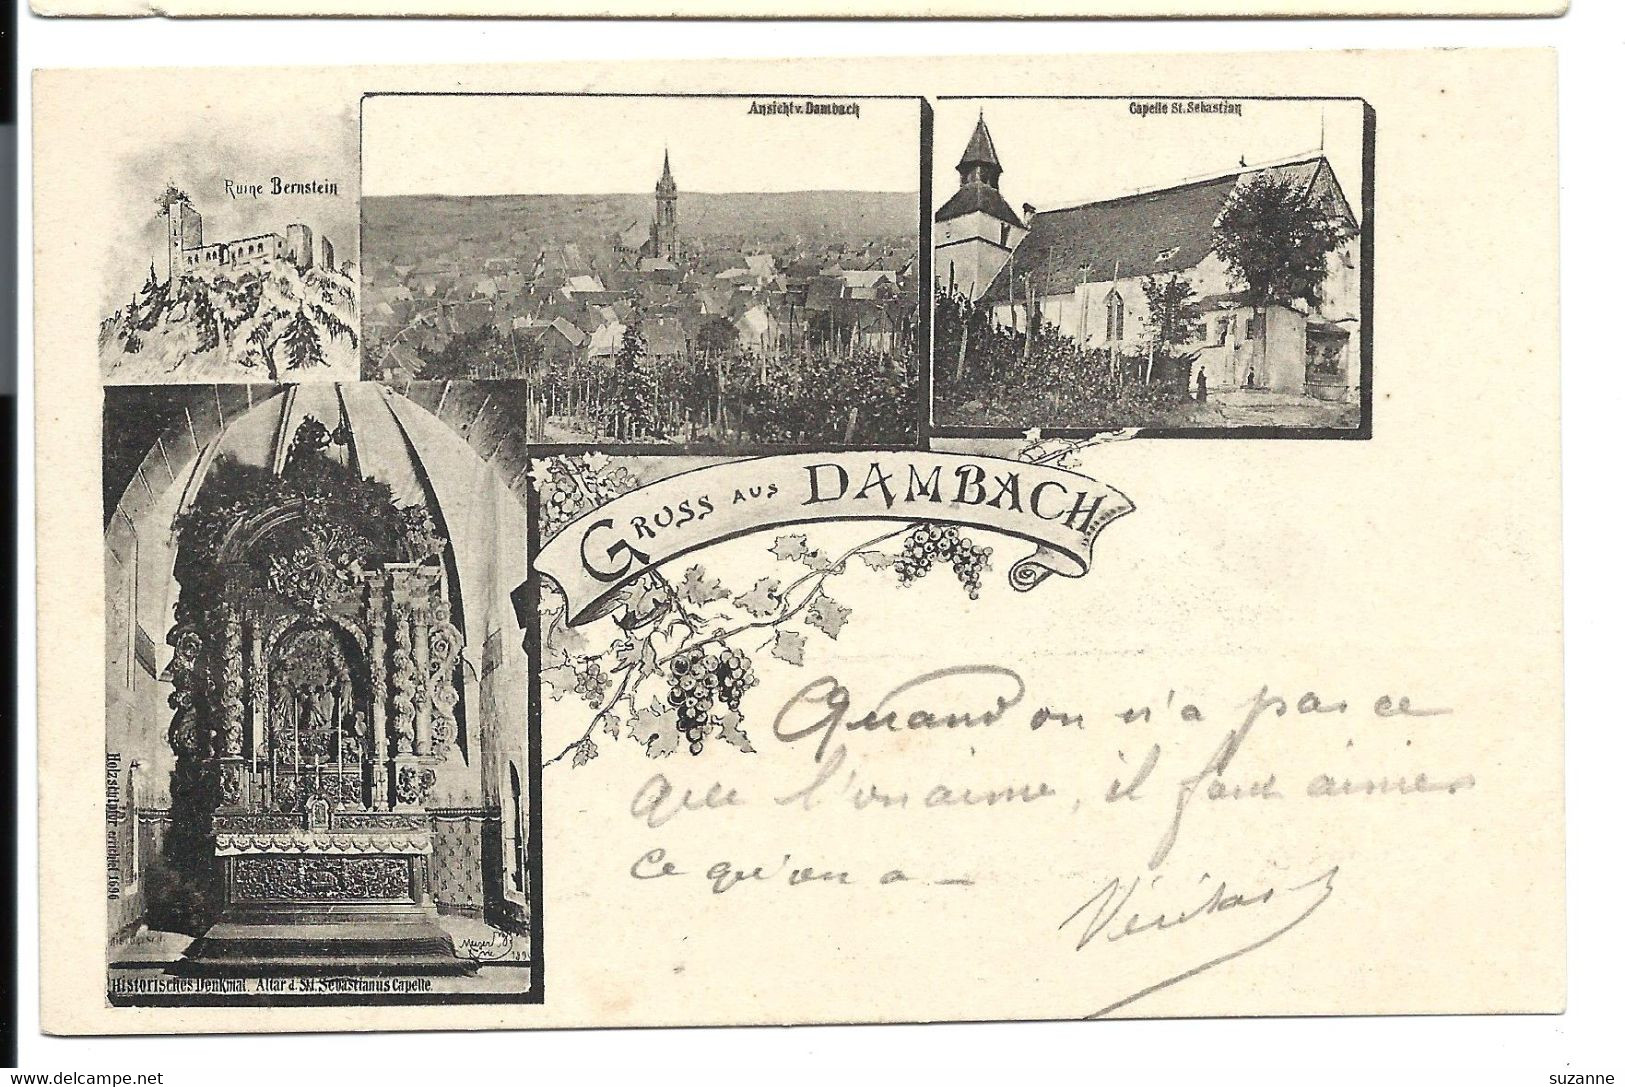 Ruine Bernstein
Ansicht v. Dambach
Capelle St. Sebastian
GRUSS AUS DAMBACH
Quand on n'a pas ce
que l'on aime, il faut aimer
ce qu'on a —
Véritas
Holzschnitzer errichtet 1696
Historisches Denkmal. Altar d. St. Sebastianus Capelle.
www.delcampe.net
suzanne